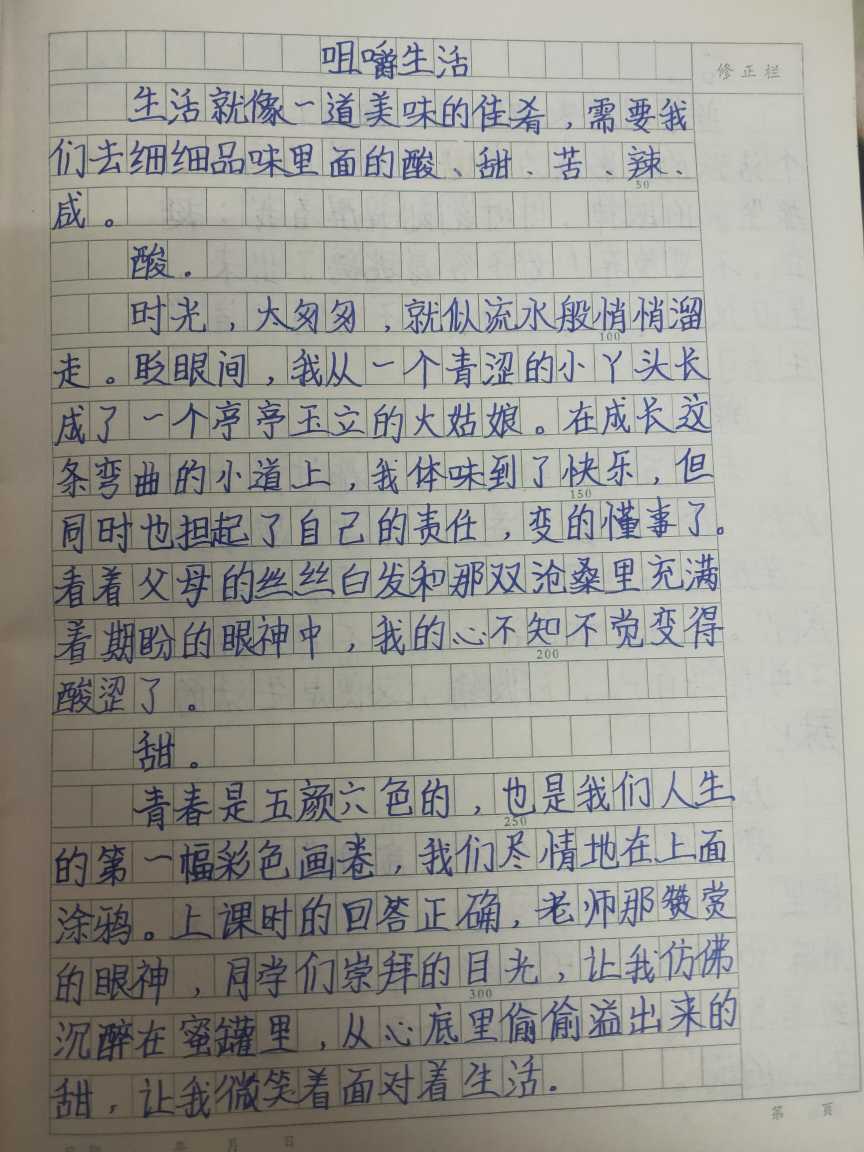 咀嚼生活
修正栏
生活就像一道美味的佳肴，需要我
们去细细品味里面的酸、甜、苦、辣、
50
咸。
酸。
时光，太匆匆，就似流水般悄悄溜
100
走。眨眼间，我从一个青涩的小丫头长
成了一个亭亭玉立的大姑娘。在成长这
条弯曲的小道上，我体味到了快乐，但
150
同时也担起了自己的责任，变的懂事了。
看着父母的丝丝白发和那双沧桑里充满
着期盼的眼神中，我的心不知不觉变得
200
酸涩了。
甜。
青春是五颜六色的，也是我们人生
250
的第一幅彩色画卷，我们尽情地在上面
涂鸦。上课时的回答正确，老师那赞赏
的眼神，同学们崇拜的目光，让我仿佛
300
沉醉在蜜罐里，从心底里偷偷溢出来的
甜，让我微笑着面对着生活。
第 页
年 月 日